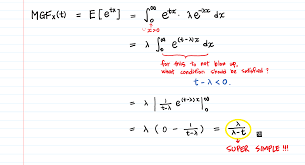 MGFₓ(t) = E[e^{tx}] = ∫₀^∞ e^{tx} · λe^{-λx} dx
x>0
= λ ∫₀^∞ e^{(t-λ)x} dx
for this to not blow up,
what condition should be satisfied?
t-λ < 0.
= λ | 1/(t-λ) e^{(t-λ)x} |₀^∞
= λ (0 - 1/(t-λ)) = λ/(λ-t)
SUPER SIMPLE!!!